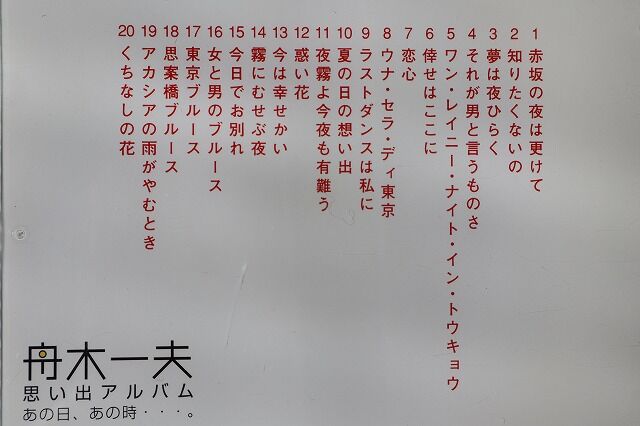 1 赤坂の夜は更けて
2 知りたくないの
3 夢は夜ひらく
4 それが男と言うものさ
5 ワン・レイニー・ナイト・イン・トウキョウ
6 倖せはここに
7 恋心
8 ウナ・セラ・ディ東京
9 ラストダンスは私に
10 夏の日の想い出
11 夜霧よ今夜も有難う
12 惑い花
13 今は幸せかい
14 霧にむせぶ夜
15 今日でお別れ
16 女と男のブルース
17 東京ブルース
18 思案橋ブルース
19 アカシアの雨がやむとき
20 くちなしの花
舟木一夫
思い出アルバム
あの日、あの時・・・。